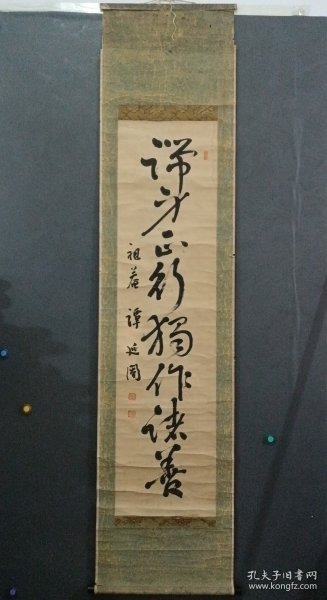 端身正行獨作諸善
祖菴 譚延闓
孔夫子旧书网
www.kongfz.com